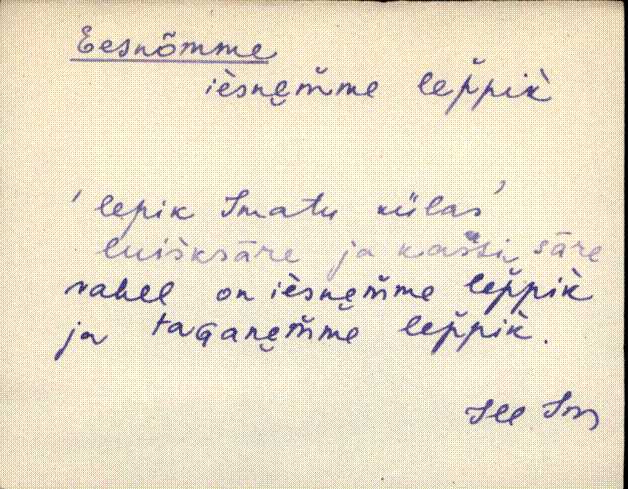 Eesnõmme
ièsnẹm̆me lep̆pik̀
'lepik Imatu külas'
luišksāre ja kaššì sāre
vahel on ièsnẹm̆me lep̆pik̀
ja taGanẹm̆me lep̆pik̀.